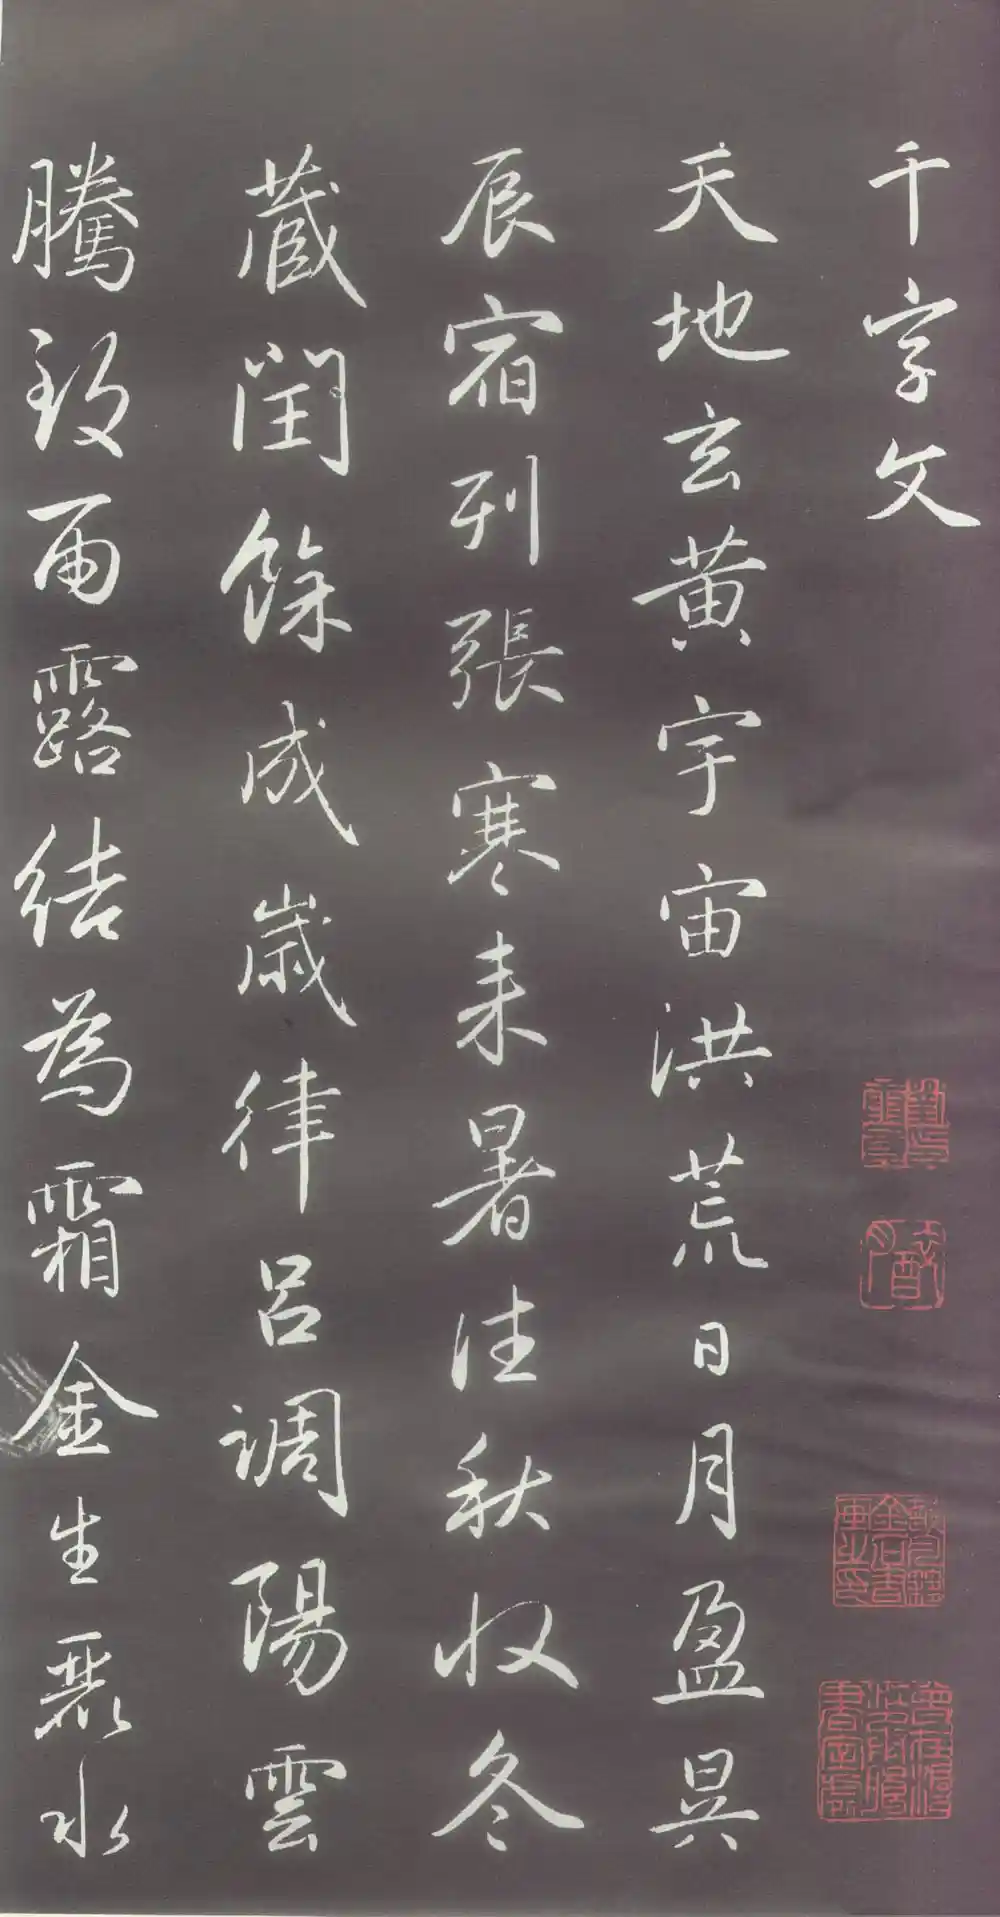 千字文
天地玄黃宇宙洪荒日月盈昃
辰宿列張寒來暑往秋收冬
藏閏餘成歲律呂調陽雲
騰致雨露結為霜金生麗水